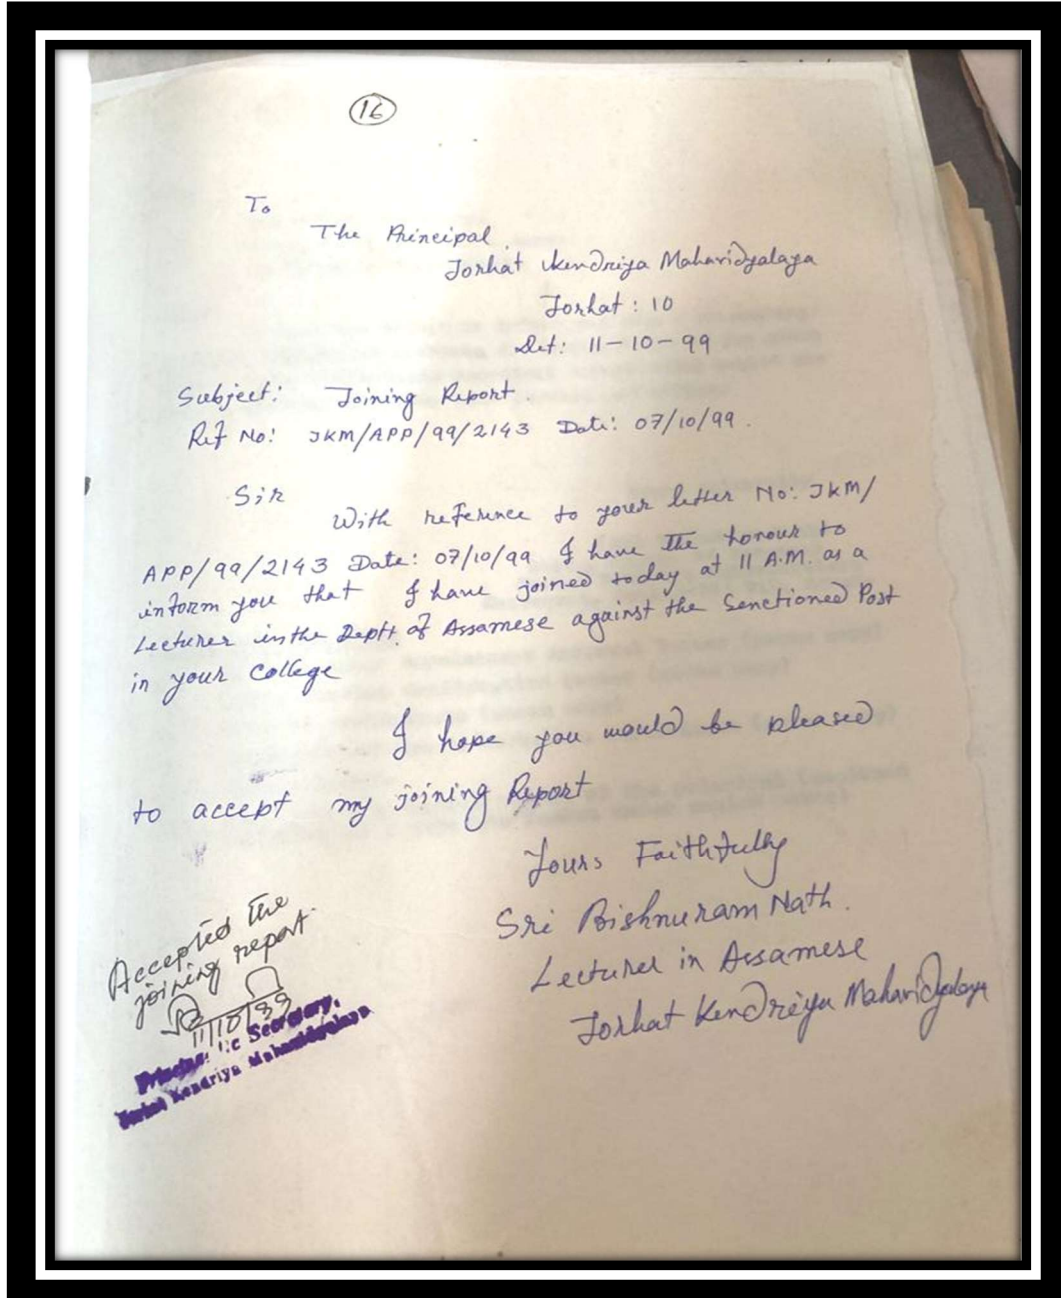 16
To
The Principal,
Jorhat Kendriya Mahavidyalaya
Jorhat : 10
Det: 11-10-99
Subject: Joining Report.
Ref No: JKM/APP/99/2143 Date: 07/10/99.
Sir
With reference to your letter No: JKM/
APP/99/2143 Date: 07/10/99 I have the honour to
inform you that I have joined today at 11 A.M. as a
Lecturer in the Deptt. of Assamese against the Sanctioned Post
in your College
I hope you would be pleased
to accept my joining Report
Yours Faithfully
Sri Bishnuram Nath.
Lecturer in Assamese
Jorhat Kendriya Mahavidyalaya
Accepted the
joining report.
11/10/99
Secretary,
Jorhat Kendriya Mahavidyalaya